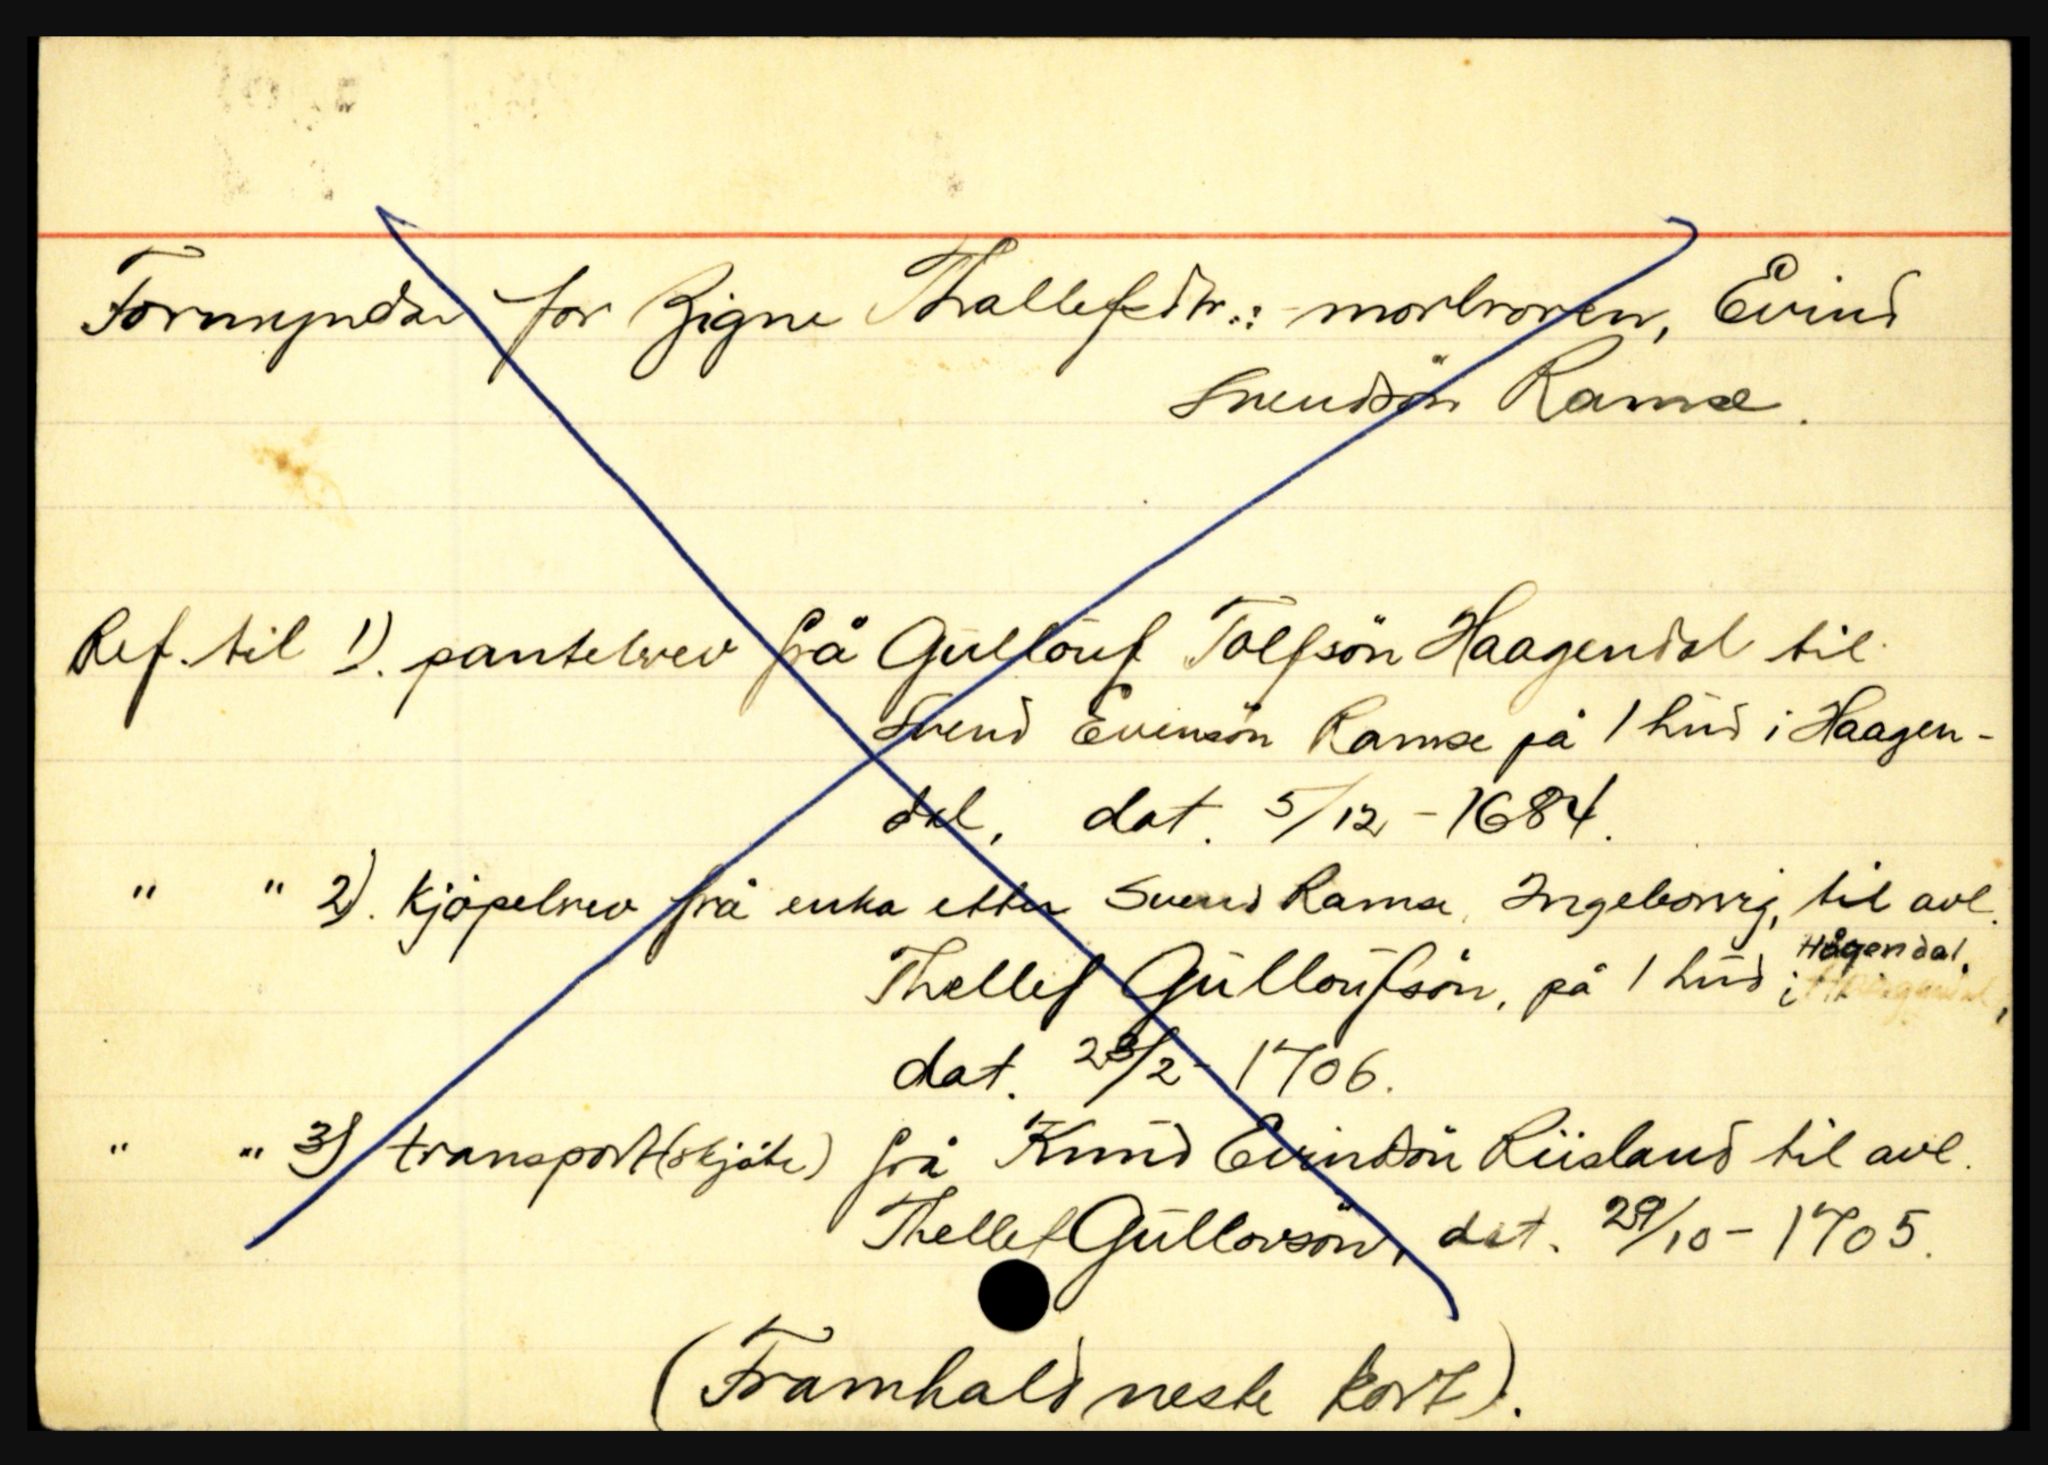 Formyndar for Zigne Thallefsdtr.: morbroren, Evind
Svendsön Ramse.
Ref. til 1). pantebrev frå Gullouf Tolfsön Haagendal til
Svend Evensön Ramse på 1 hud i Haagen-
dal, dat. 5/12 - 1684.
" " 2). Kjöpebrev frå enka etter Svend Ramse, Ingeborrig, til avl.
Thellef Gulloufsön, på 1 hud i Hågendal,
dat. 23/2 - 1706.
" " 3) transport (skjöte) frå Knud Evindsön Riisland til avl.
Thellef Gullovsön, dat. 29/10 - 1705.
(Framhald neste kort).